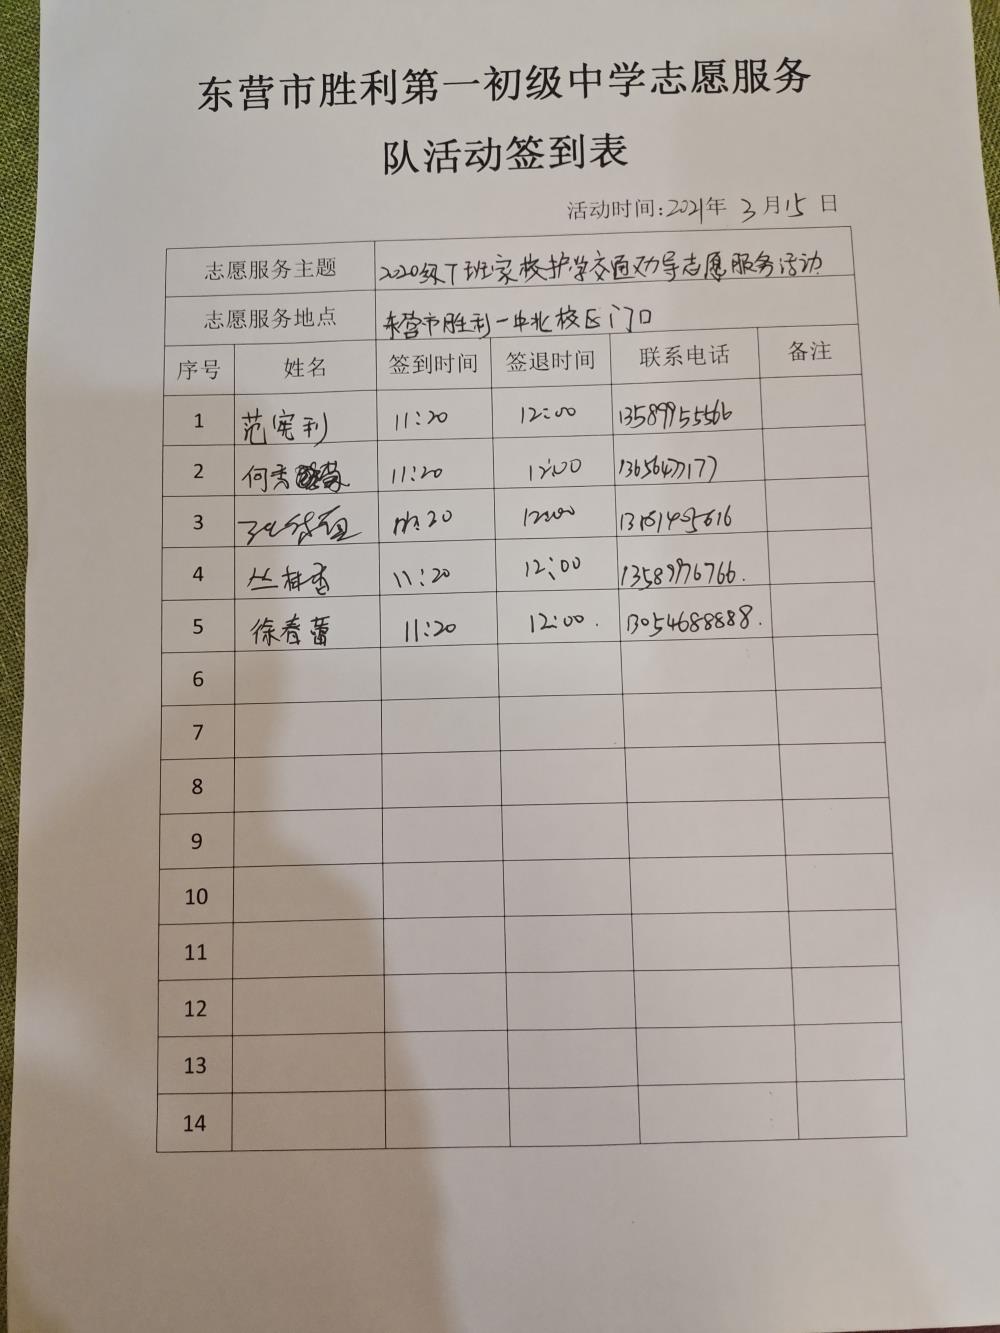 东营市胜利第一初级中学志愿服务
队活动签到表
活动时间:2021年 3月15日
志愿服务主题 2020级7班家校护学交通劝导志愿服务活动
志愿服务地点 东营市胜利一中北校区门口
序号 姓名 签到时间 签退时间 联系电话 备注
1 范宪利 11:20 12:00 13589955566
2 何秀 11:20 12:00
3 11:20 12:00
4 丛 11:20 12:00 13589976766.
5 徐春蕾 11:20 12:00. 13054688888.
6
7
8
9
10
11
12
13
14